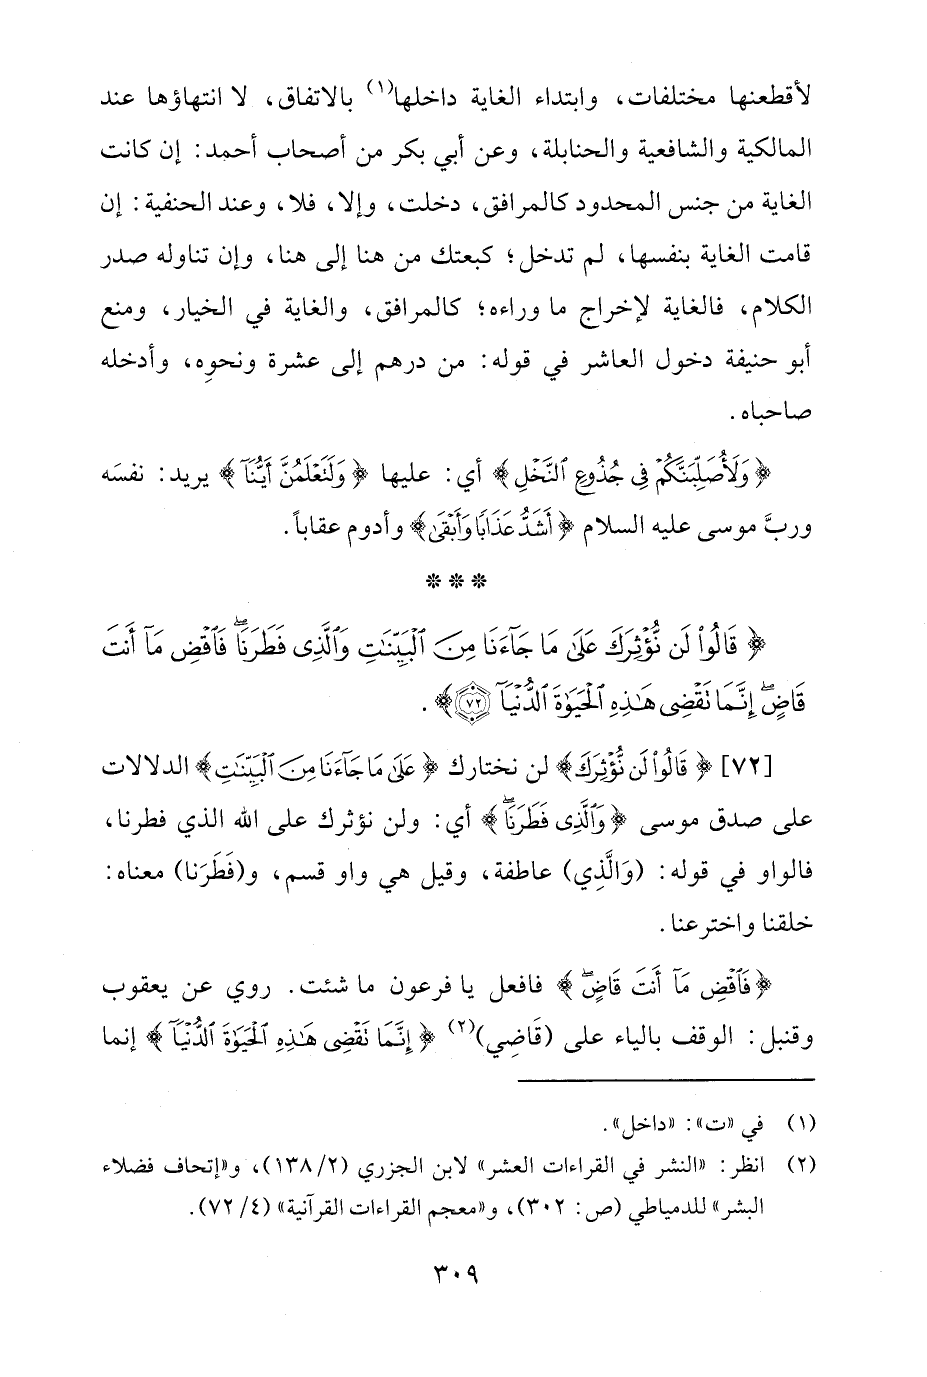 لأقطعنها مختلفات، وابتداء الغاية داخلها(١) بالاتفاق، لا انتهاؤها عند
المالكية والشافعية والحنابلة، وعن أبي بكر من أصحاب أحمد: إن كانت
الغاية من جنس المحدود كالمرافق، دخلت، وإلا، فلا، وعند الحنفية: إن
قامت الغاية بنفسها، لم تدخل؛ كبعتك من هنا إلى هنا، وإن تناوله صدر
الكلام، فالغاية لإخراج ما وراءه؛ كالمرافق، والغاية في الخيار، ومنع
أبو حنيفة دخول العاشر في قوله: من درهم إلى عشرة ونحوِه، وأدخله
صاحباه.
﴿وَلَأُصَلِّبَنَّكُمْ فِى جُذُوعِ ٱلنَّخْلِ﴾ أي: عليها ﴿وَلَتَعْلَمُنَّ أَيُّنَآ﴾ يريد: نفسَه
وربَّ موسى عليه السلام ﴿أَشَدُّ عَذَابًا وَأَبْقَىٰ﴾ وأدوم عقاباً.
***
﴿قَالُوا۟ لَن نُّؤْثِرَكَ عَلَىٰ مَا جَآءَنَا مِنَ ٱلْبَيِّنَـٰتِ وَٱلَّذِى فَطَرَنَا ۖ فَٱقْضِ مَآ أَنتَ
قَاضٍ ۖ إِنَّمَا تَقْضِى هَـٰذِهِ ٱلْحَيَوٰةَ ٱلدُّنْيَآ ۝٧٢﴾.
[٧٢] ﴿قَالُوا۟ لَن نُّؤْثِرَكَ﴾ لن نختارك ﴿عَلَىٰ مَا جَآءَنَا مِنَ ٱلْبَيِّنَـٰتِ﴾ الدلالات
على صدق موسى ﴿وَٱلَّذِى فَطَرَنَا ۖ﴾ أي: ولن نؤثرك على الله الذي فطرنا،
فالواو في قوله: (وَالَّذِي) عاطفة، وقيل هي واو قسم، و(فَطَرَنا) معناه:
خلقنا واخترعنا.
﴿فَٱقْضِ مَآ أَنتَ قَاضٍ ۖ﴾ فافعل يا فرعون ما شئت. روي عن يعقوب
وقنبل: الوقف بالياء على (قَاضِي)(٢) ﴿إِنَّمَا تَقْضِى هَـٰذِهِ ٱلْحَيَوٰةَ ٱلدُّنْيَآ﴾ إنما
(١) في «ت»: «داخل».
(٢) انظر: «النشر في القراءات العشر» لابن الجزري (٢/ ١٣٨)، و«إتحاف فضلاء
البشر» للدمياطي (ص: ٣٠٢)، و«معجم القراءات القرآنية» (٤/ ٧٢).
٣٠٩